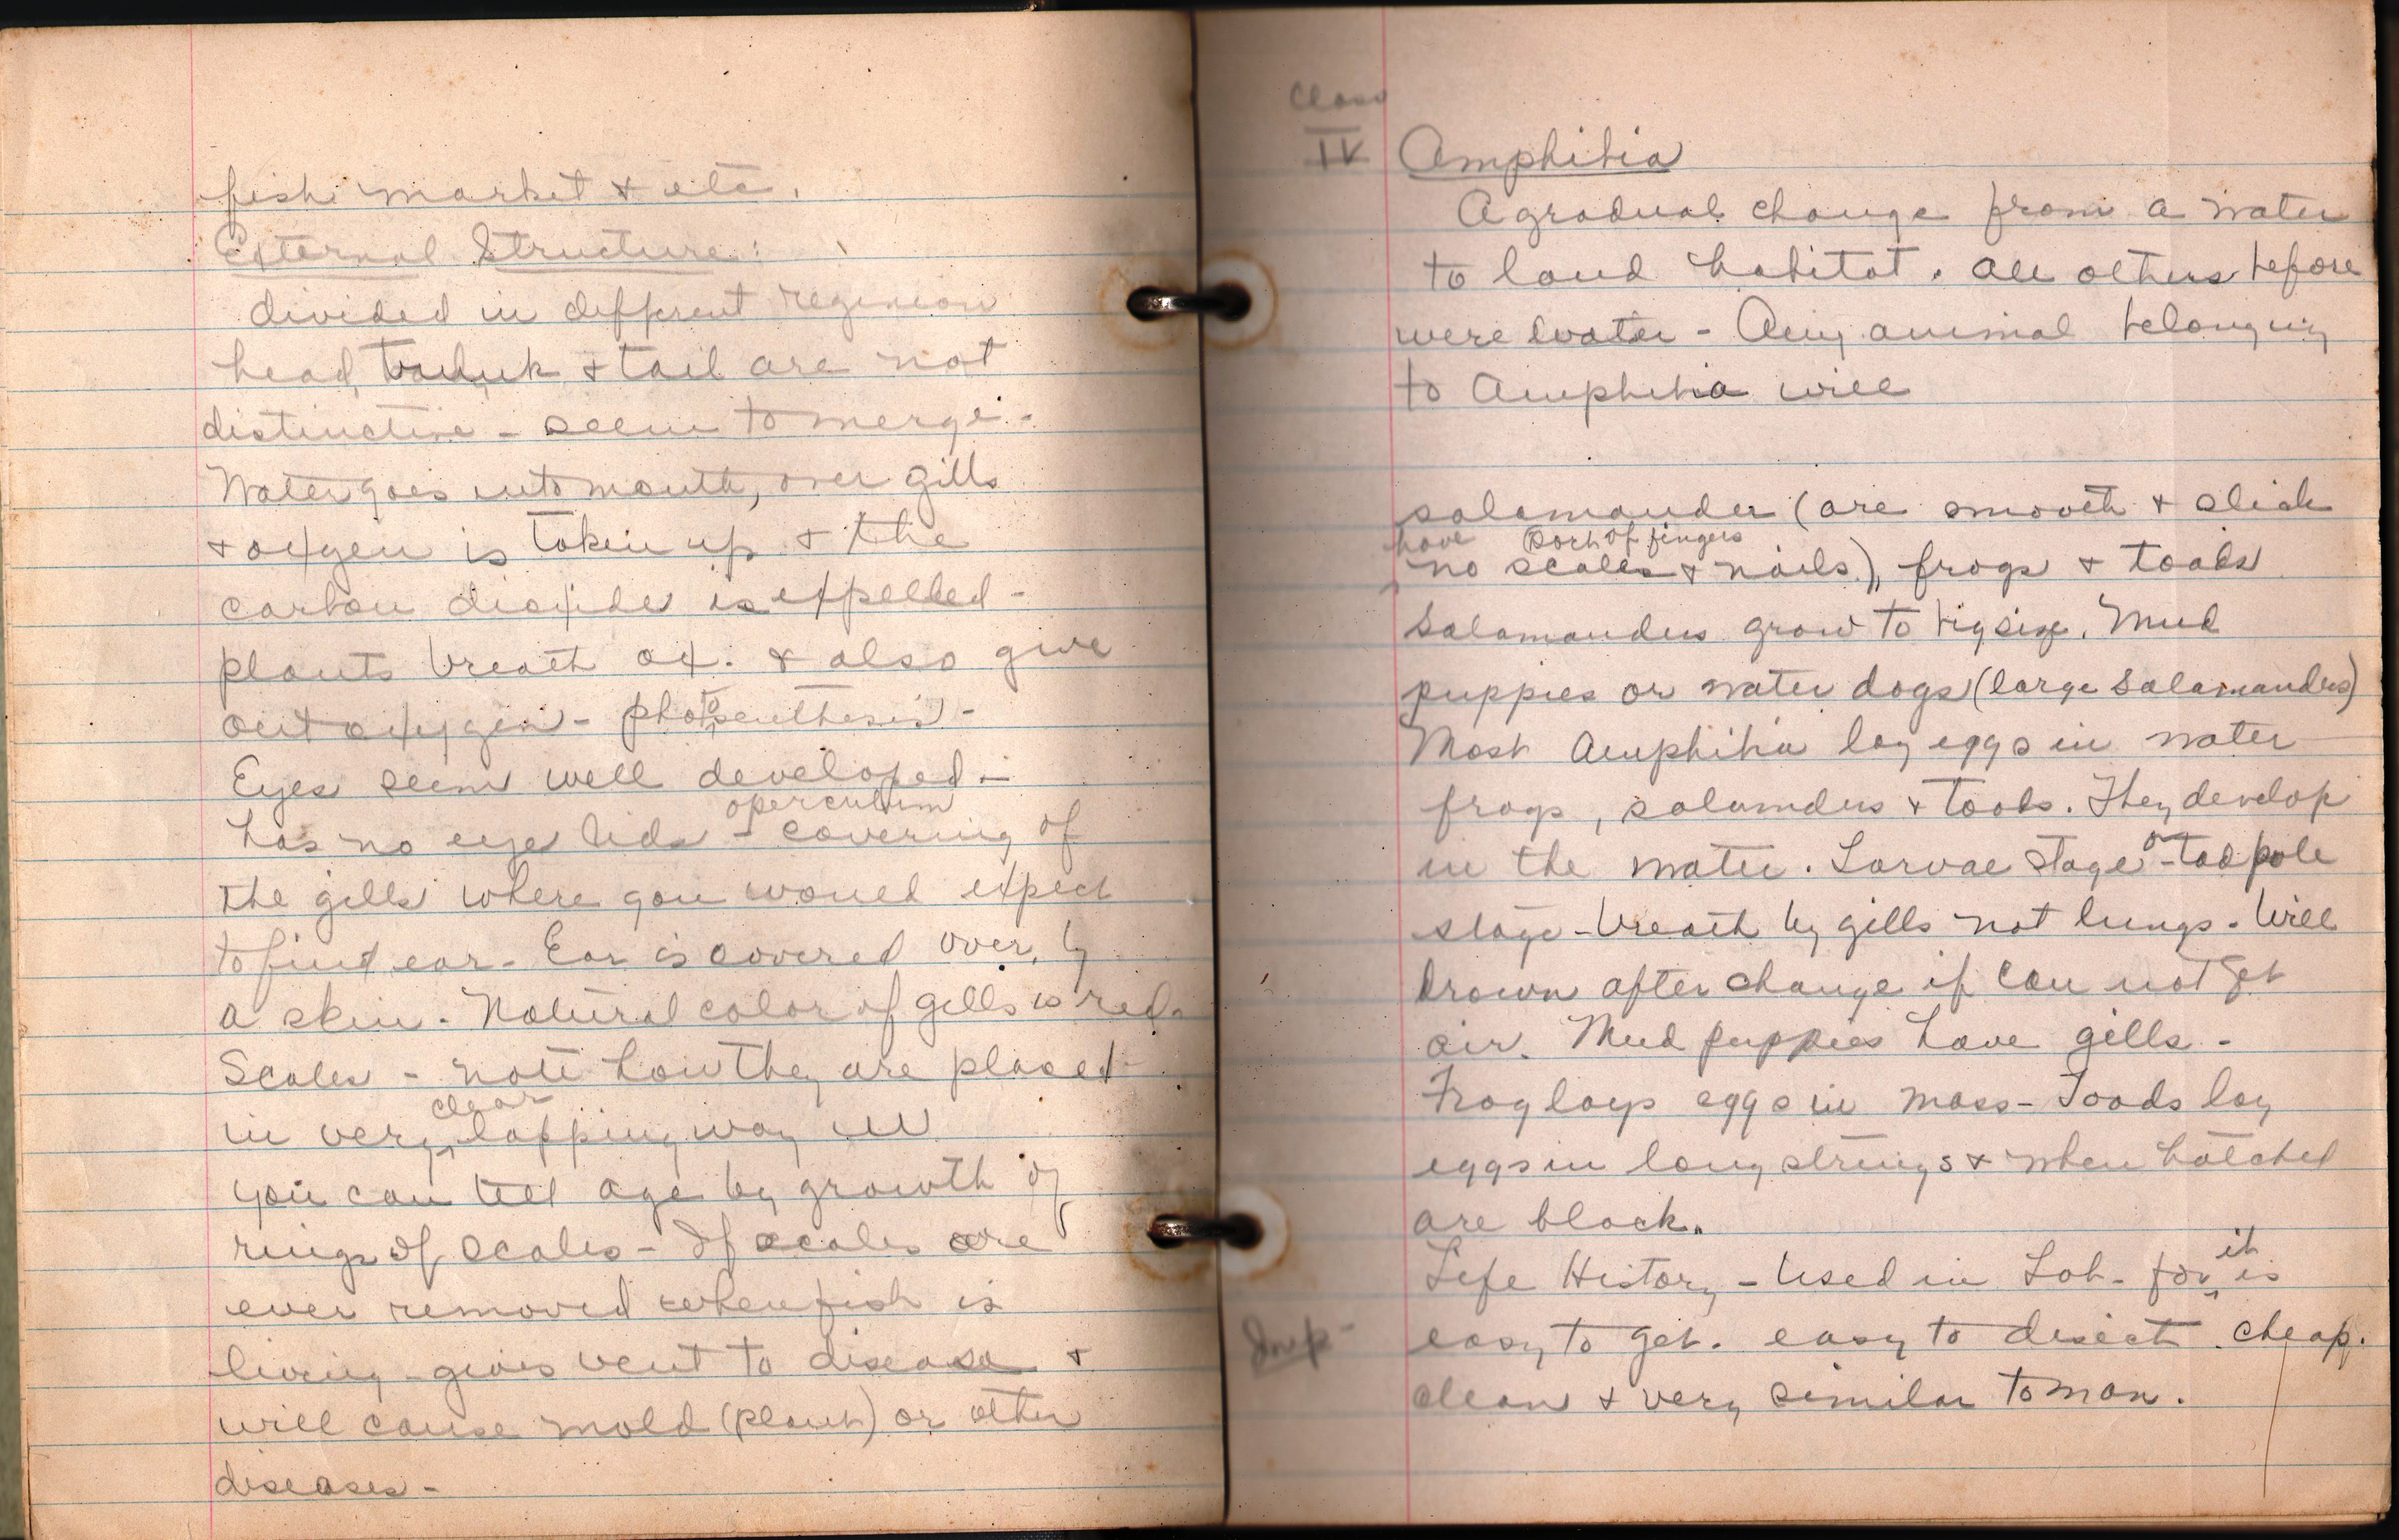 fish market & etc.
External Structure:
divided in different
head, trunk & tail are not
distinctive - seem to merge -
Water goes into mouth, over gills
& oxygen is taken up & the
carbon dioxide is expelled -
plants breath ox. & also give
out oxygen - photosenthesis -
Eyes seem well developed -
operculum
has no eye lids - covering of
the gills where you would expect
to find ear - Ear is covered over by
a skin - Natural color of gills is red -
Scales - note how they are placed
clear
in very lapping way
you can tell age by growth of
rings of scales - If scales are
ever removed when fish is
living - gives vent to disease &
will cause mold (plant) or other
diseases -
Class
IV Amphibia
A gradual change from a water
to land habitat. All others before
were water - Any animal belonging
to Amphibia will
salamander (are smooth & slick
have sort of fingers
no scales & nails), frogs & toads
Salamanders grow to big size. Mud
puppies or water dogs (large salamanders)
Most Amphibia lay eggs in water
frogs, salamders & toads. They develop
in the water. Larvae stage or tadpole
stage - breath by gills not lungs. Will
drown after change if can not get
air. Mud puppies have gills -
Frog lays eggs in mass - Toads lay
eggs in long strings & when hatched
are black.
it
Life History - Used in Lab - for is
Imp - easy to get. easy to disect. cheap.
clean & very similar to man.